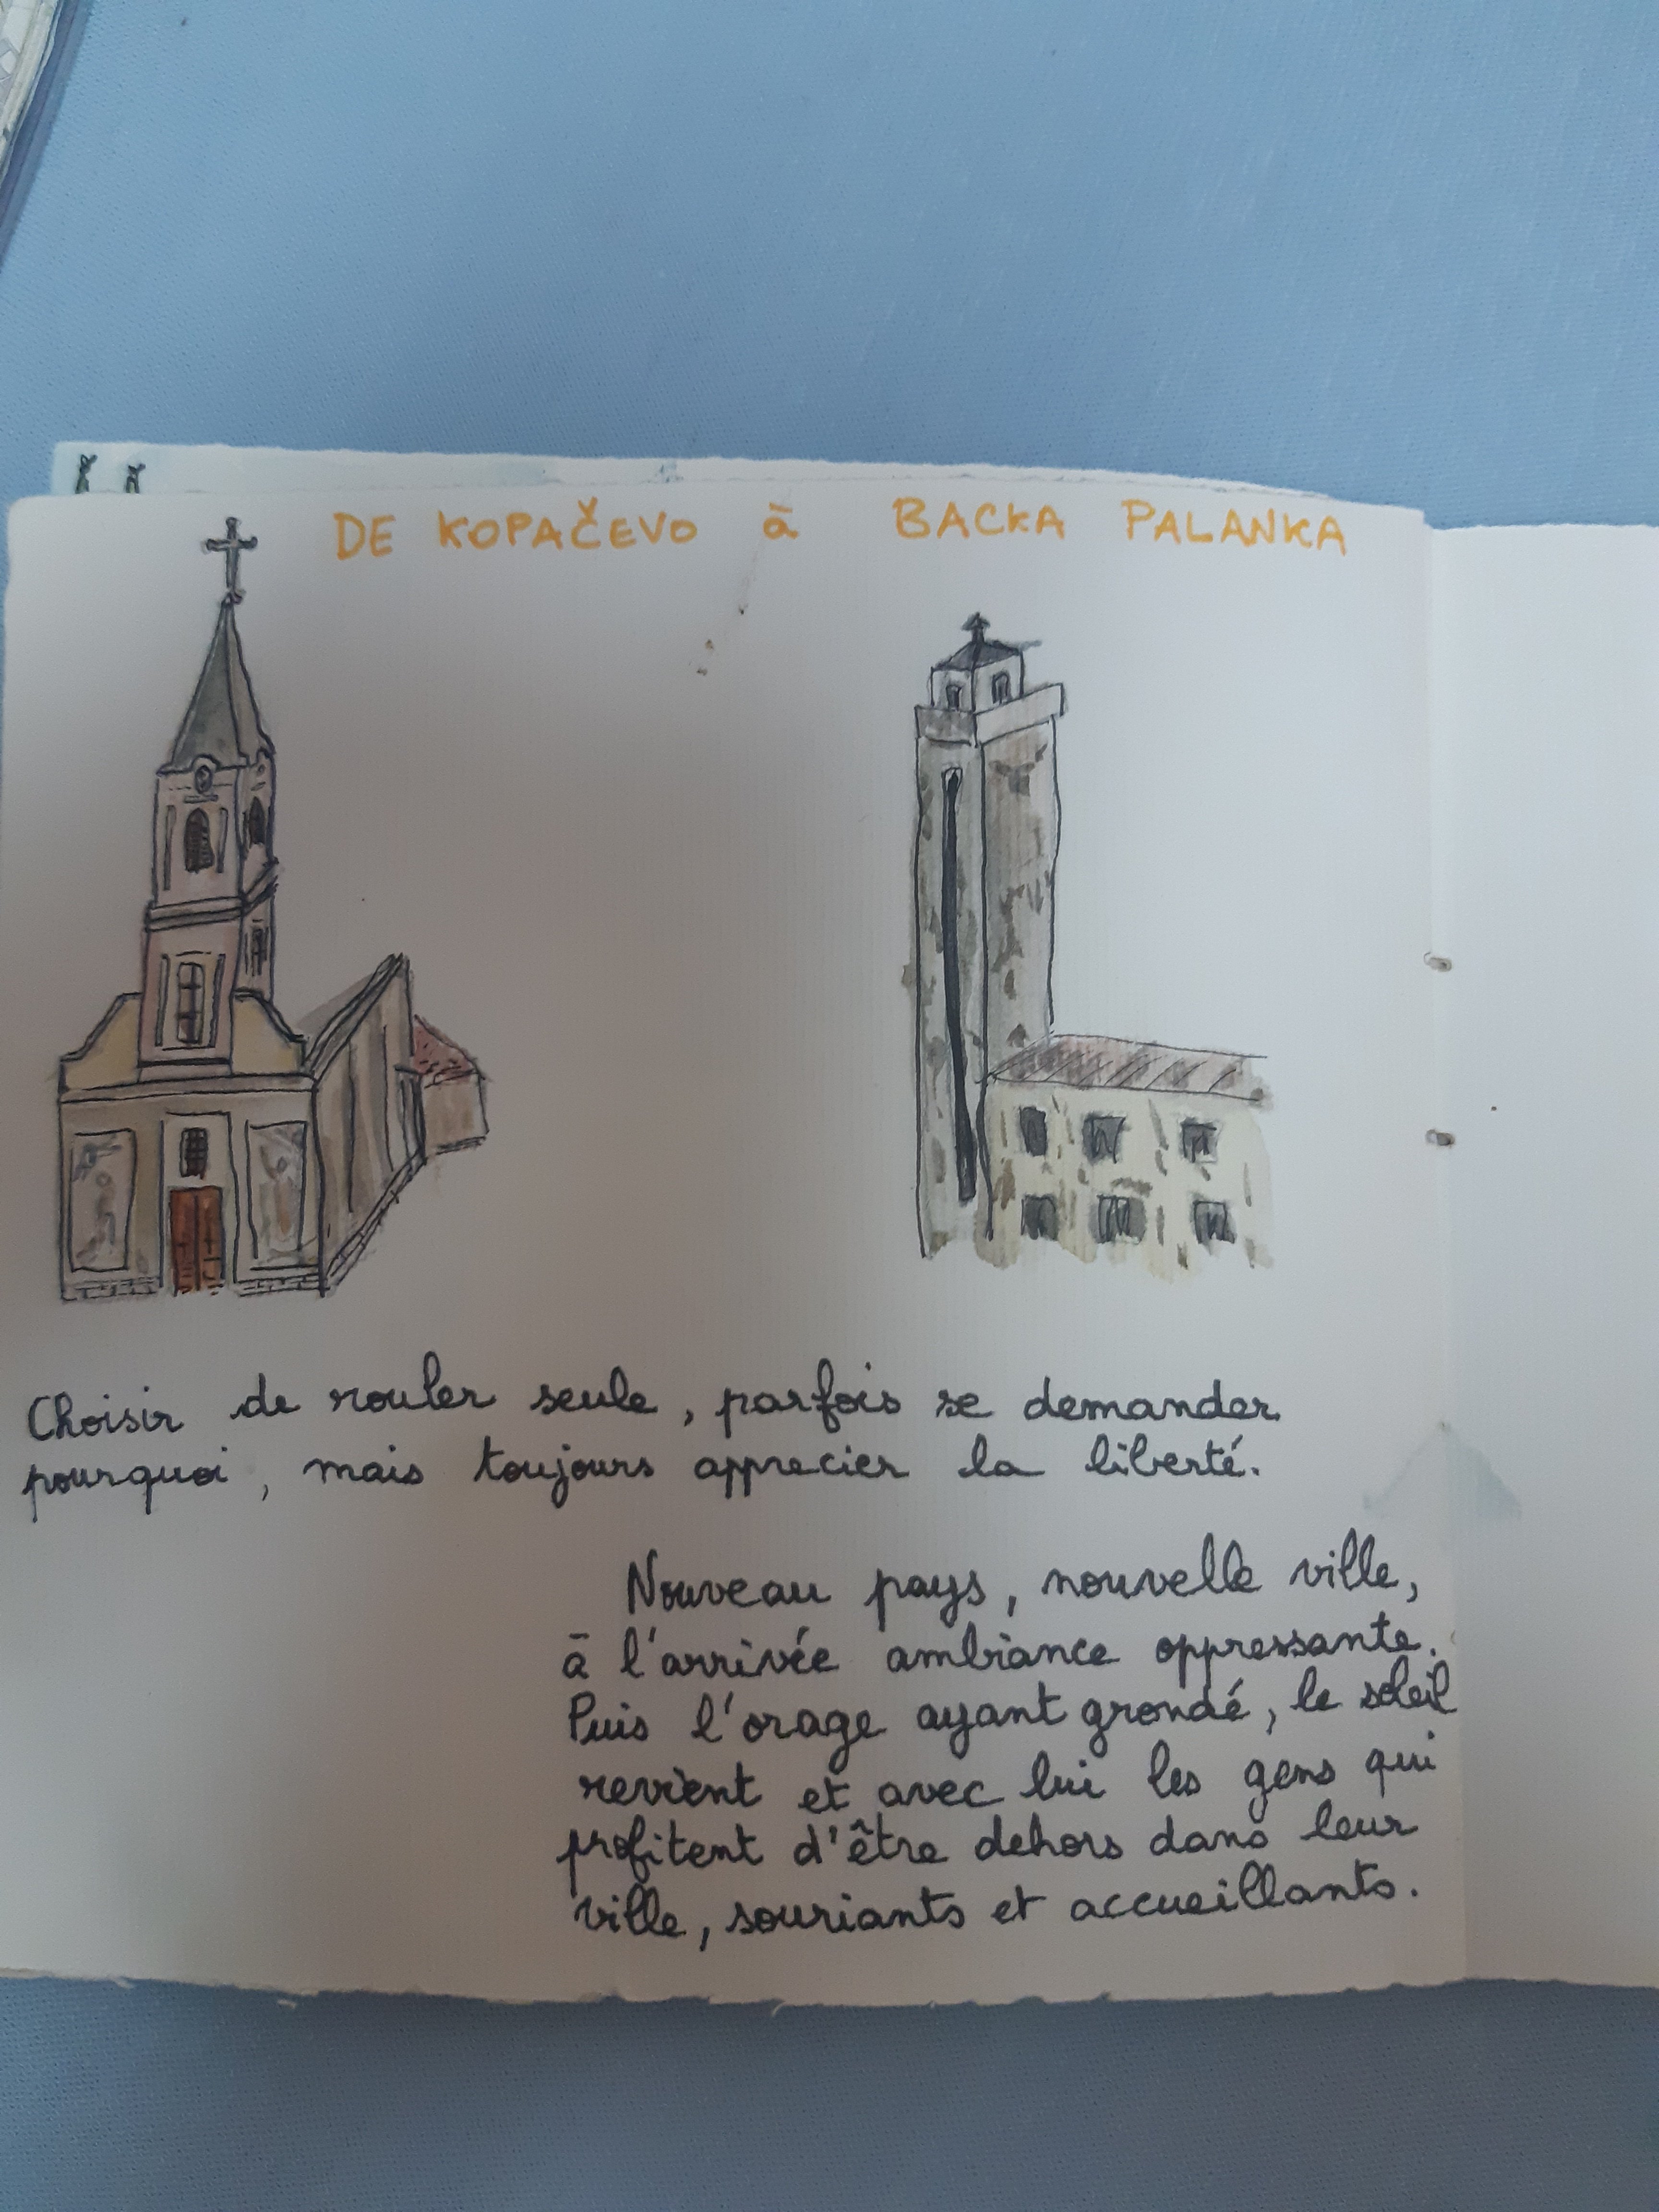 DE KOPAČEVO à BACKA PALANKA
Choisir de rouler seule, parfois se demander
pourquoi, mais toujours apprecier la liberté.
Nouveau pays, nouvelle ville,
à l'arrivée ambiance oppressante.
Puis l'orage ayant grondé, le soleil
revient et avec lui les gens qui
profitent d'être dehors dans leur
ville, souriants et accueillants.